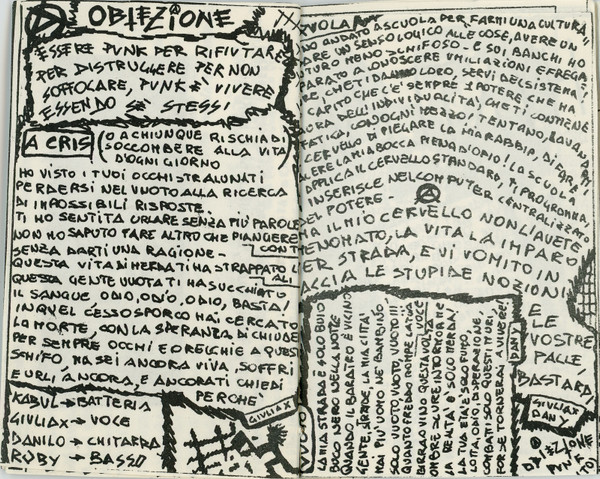 OBIEZIONE
ESSERE PUNK PER RIFIUTARE
PER DISTRUGGERE PER NON
SOFFOCARE, PUNK E' VIVERE
ESSENDO SE' STESSI
A CRIS (O A CHIUNQUE RISCHIA DI
SOCCOMBERE ALLA VITA
D'OGNI GIORNO
HO VISTO I TUOI OCCHI STRALUNATI
PERDERSI NEL VUOTO ALLA RICERCA
DI IMPOSSIBILI RISPOSTE.
TI HO SENTITA URLARE SENZA PIU' PAROLE
NON HO SAPUTO FARE ALTRO CHE PIANGERE
CON TE
SENZA DARTI UNA RAGIONE-
QUESTA VITA DI MERDA TI HA STRAPPATO L
ALI
QUESTA GENTE VUOTA TI HA SUCCHIATO
IL SANGUE ODIO, ODIO, ODIO, BASTA!
IN QUEL CESSO SPORCO HAI CERCATO
LA MORTE, CON LA SPERANZA DI CHIUDE
PER SEMPRE OCCHI E ORECCHIE A QUESTO
SCHIFO, MA SEI ANCORA VIVA, SOFFRI
E URLI ANCORA, E ANCORA TI CHIEDI
PERCHE'
GIULIAX
KABUL→BATTERIA
GIULIAX→VOCE
DANILO→CHITARRA
ROBY→BASSO
ANDATO A SCUOLA PER FARMI UNA CULTURA
DARE UN SENSO LOGICO ALLE COSE, AVERE UN
FUTURO MENO SCHIFOSO- E SUI BANCHI HO
IMPARATO A CONOSCERE UMILIAZIONI E FREGA
CHE TI DANNO LORO, SERVI DEL SISTEMA,
CAPITO CHE C'E' SEMPRE 1 POTERE CHE HA
PAURA DELL'INDIVIDUALITA', CHE TI CONTIENE
CON OGNI MEZZO! TENTANO,
CERVELLO DI PIEGARE LA MIA RABBIA, DI
LA MIA BOCCA PIENA D'ODIO! LA SCUOLA
APPLICA IL CERVELLO STANDARD, TI PROGRAMMA,
INSERISCE NEL COMPUTER CENTRALIZZATO
DEL POTERE-
MA IL MIO CERVELLO NON L'AVETE
LA VITA LA IMPARO
PER STRADA, E VI VOMITO IN
FACCIA LE STUPIDE NOZIONI
E
LE
VOSTRE
PALLE,
BASTARDI
GIULIAX
DANY
LA MIA STRADA E' SOLO BUIO
BUCO NERO NELLA NOTTE
QUANDO IL BARATRO E' VICINO
GENTE, STRIDE, LA MIA CITTA'
MAI UOMO NE' BAMBINO,
SOLO VUOTO, VUOTO, VUOTO!!!
QUANTO FREDDO ROMPE LA TUA VOCE
OMBRE SCURE INTORNO A ME
LA REALTA' E' SOLO MERDA!
LOTTA, ODIO, SPERANZA
COMBATTI SOLO QUESTI MURI,
FORSE TORNERAI A VIVERE!
DANY
OBIEZIONE
PUNK